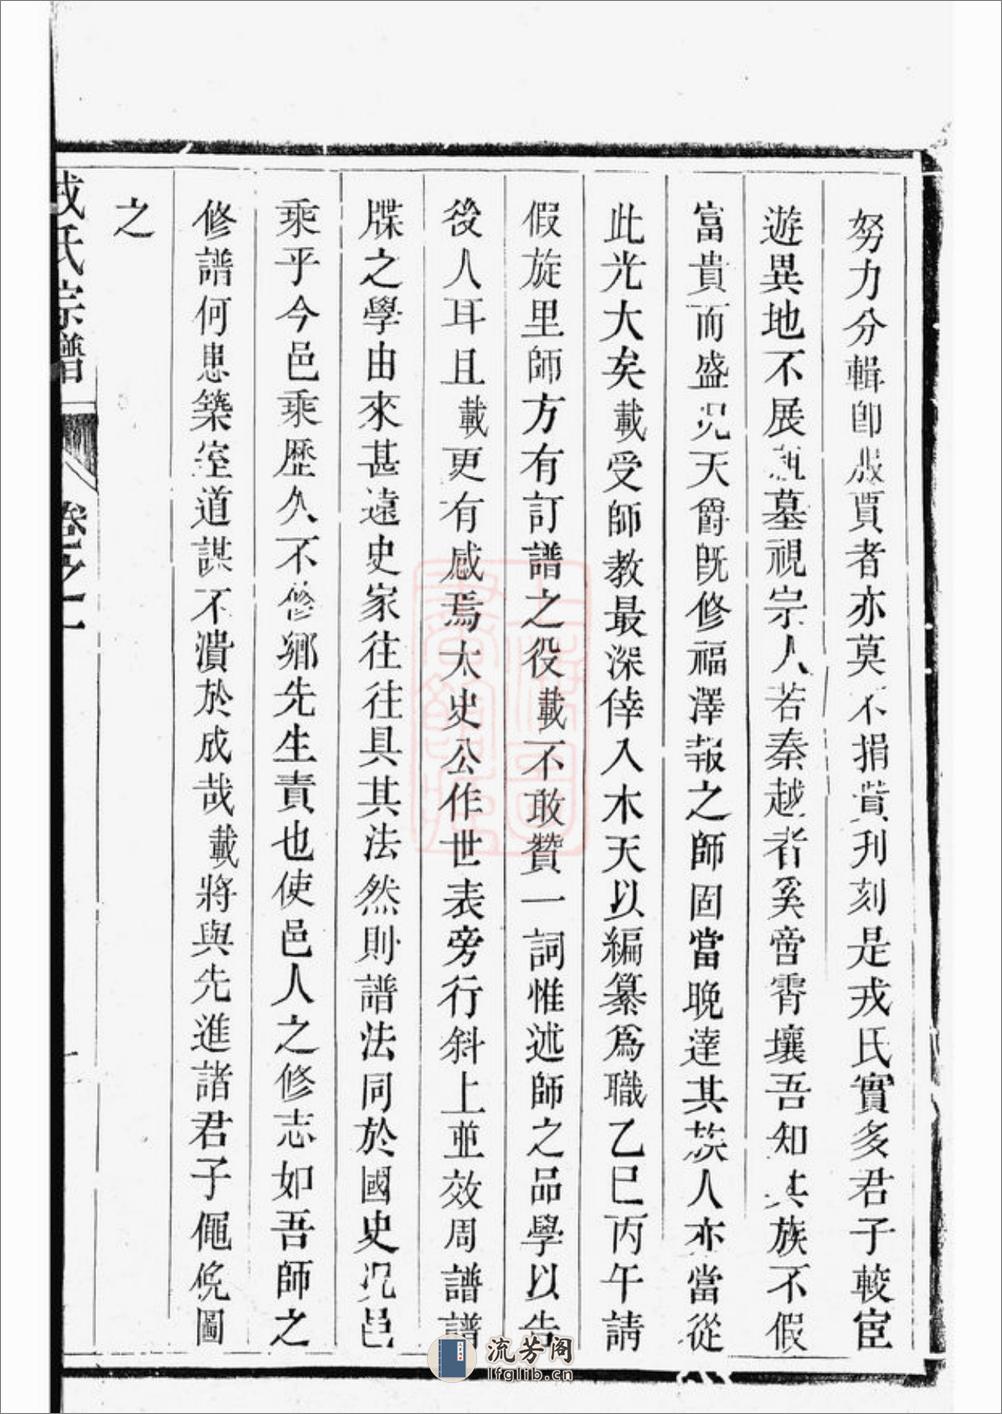 努力分輯卽服賈者亦莫不捐貲刋刻是戎氏實多君子較宦
遊異地不展丘墓視宗人若秦越者奚啻霄壤吾知其族不假
富貴而盛況天爵旣修福澤報之師固當晚達其族人亦當從
此光大矣載受師教最深倖入木天以編纂爲職乙巳丙午請
假旋里師方有訂譜之役載不敢贊一詞惟述師之品學以告
後人耳且載更有感焉太史公作世表旁行斜上並效周譜譜
牒之學由來甚遠史家往往具其法然則譜法同於國史況邑
乘乎今邑乘歷久不修鄉先生責也使邑人之修志如吾師之
修譜何患築室道謀不潰於成哉載將與先進諸君子僶俛圖
之
戎氏宗譜 卷之一
流芳阁
lfglib.cn